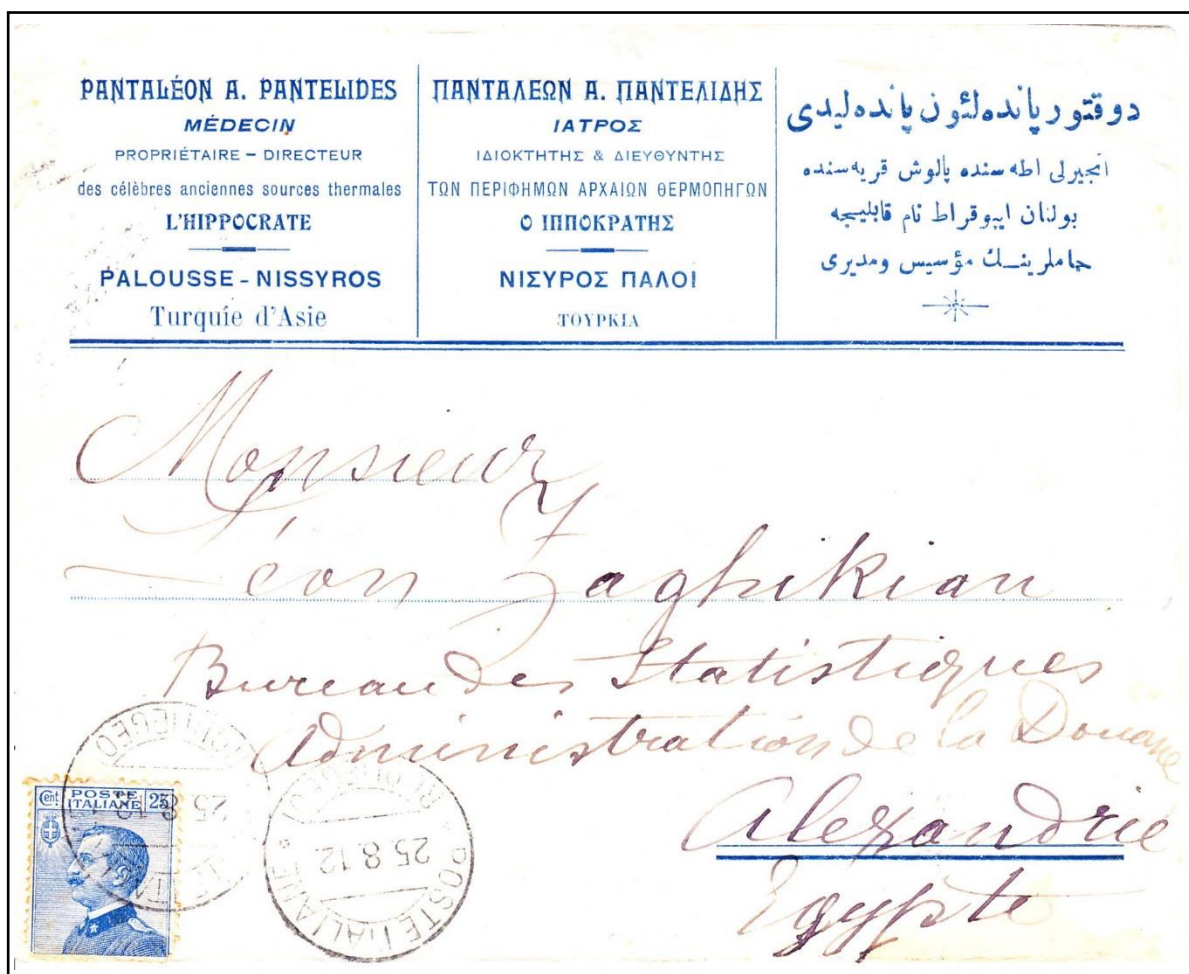 PANTALÉON A. PANTELIDES
MÉDECIN
PROPRIÉTAIRE – DIRECTEUR
des célèbres anciennes sources thermales
L'HIPPOCRATE
PALOUSSE - NISSYROS
Turquie d'Asie
ΠΑΝΤΑΛΕΩΝ Α. ΠΑΝΤΕΛΙΔΗΣ
ΙΑΤΡΟΣ
ΙΔΙΟΚΤΗΤΗΣ & ΔΙΕΥΘΥΝΤΗΣ
ΤΩΝ ΠΕΡΙΦΗΜΩΝ ΑΡΧΑΙΩΝ ΘΕΡΜΟΠΗΓΩΝ
Ο ΙΠΠΟΚΡΑΤΗΣ
ΝΙΣΥΡΟΣ ΠΑΛΟΙ
ΤΟΥΡΚΙΑ
دوقتور پانده لئون پانده ليدى
انجيرلى اطه سنده پالوش قريه سنده
بولنان ايپوقراط نام قابليجه
حماملرينك مؤسيس ومديرى
Monsieur
Léon Zaghikian
Bureau des Statistiques
Administration de la Douane
Alexandrie
Egypte
Cent. POSTE ITALIANE 25
25 8 12
POSTE ITALIANE
25.8.12